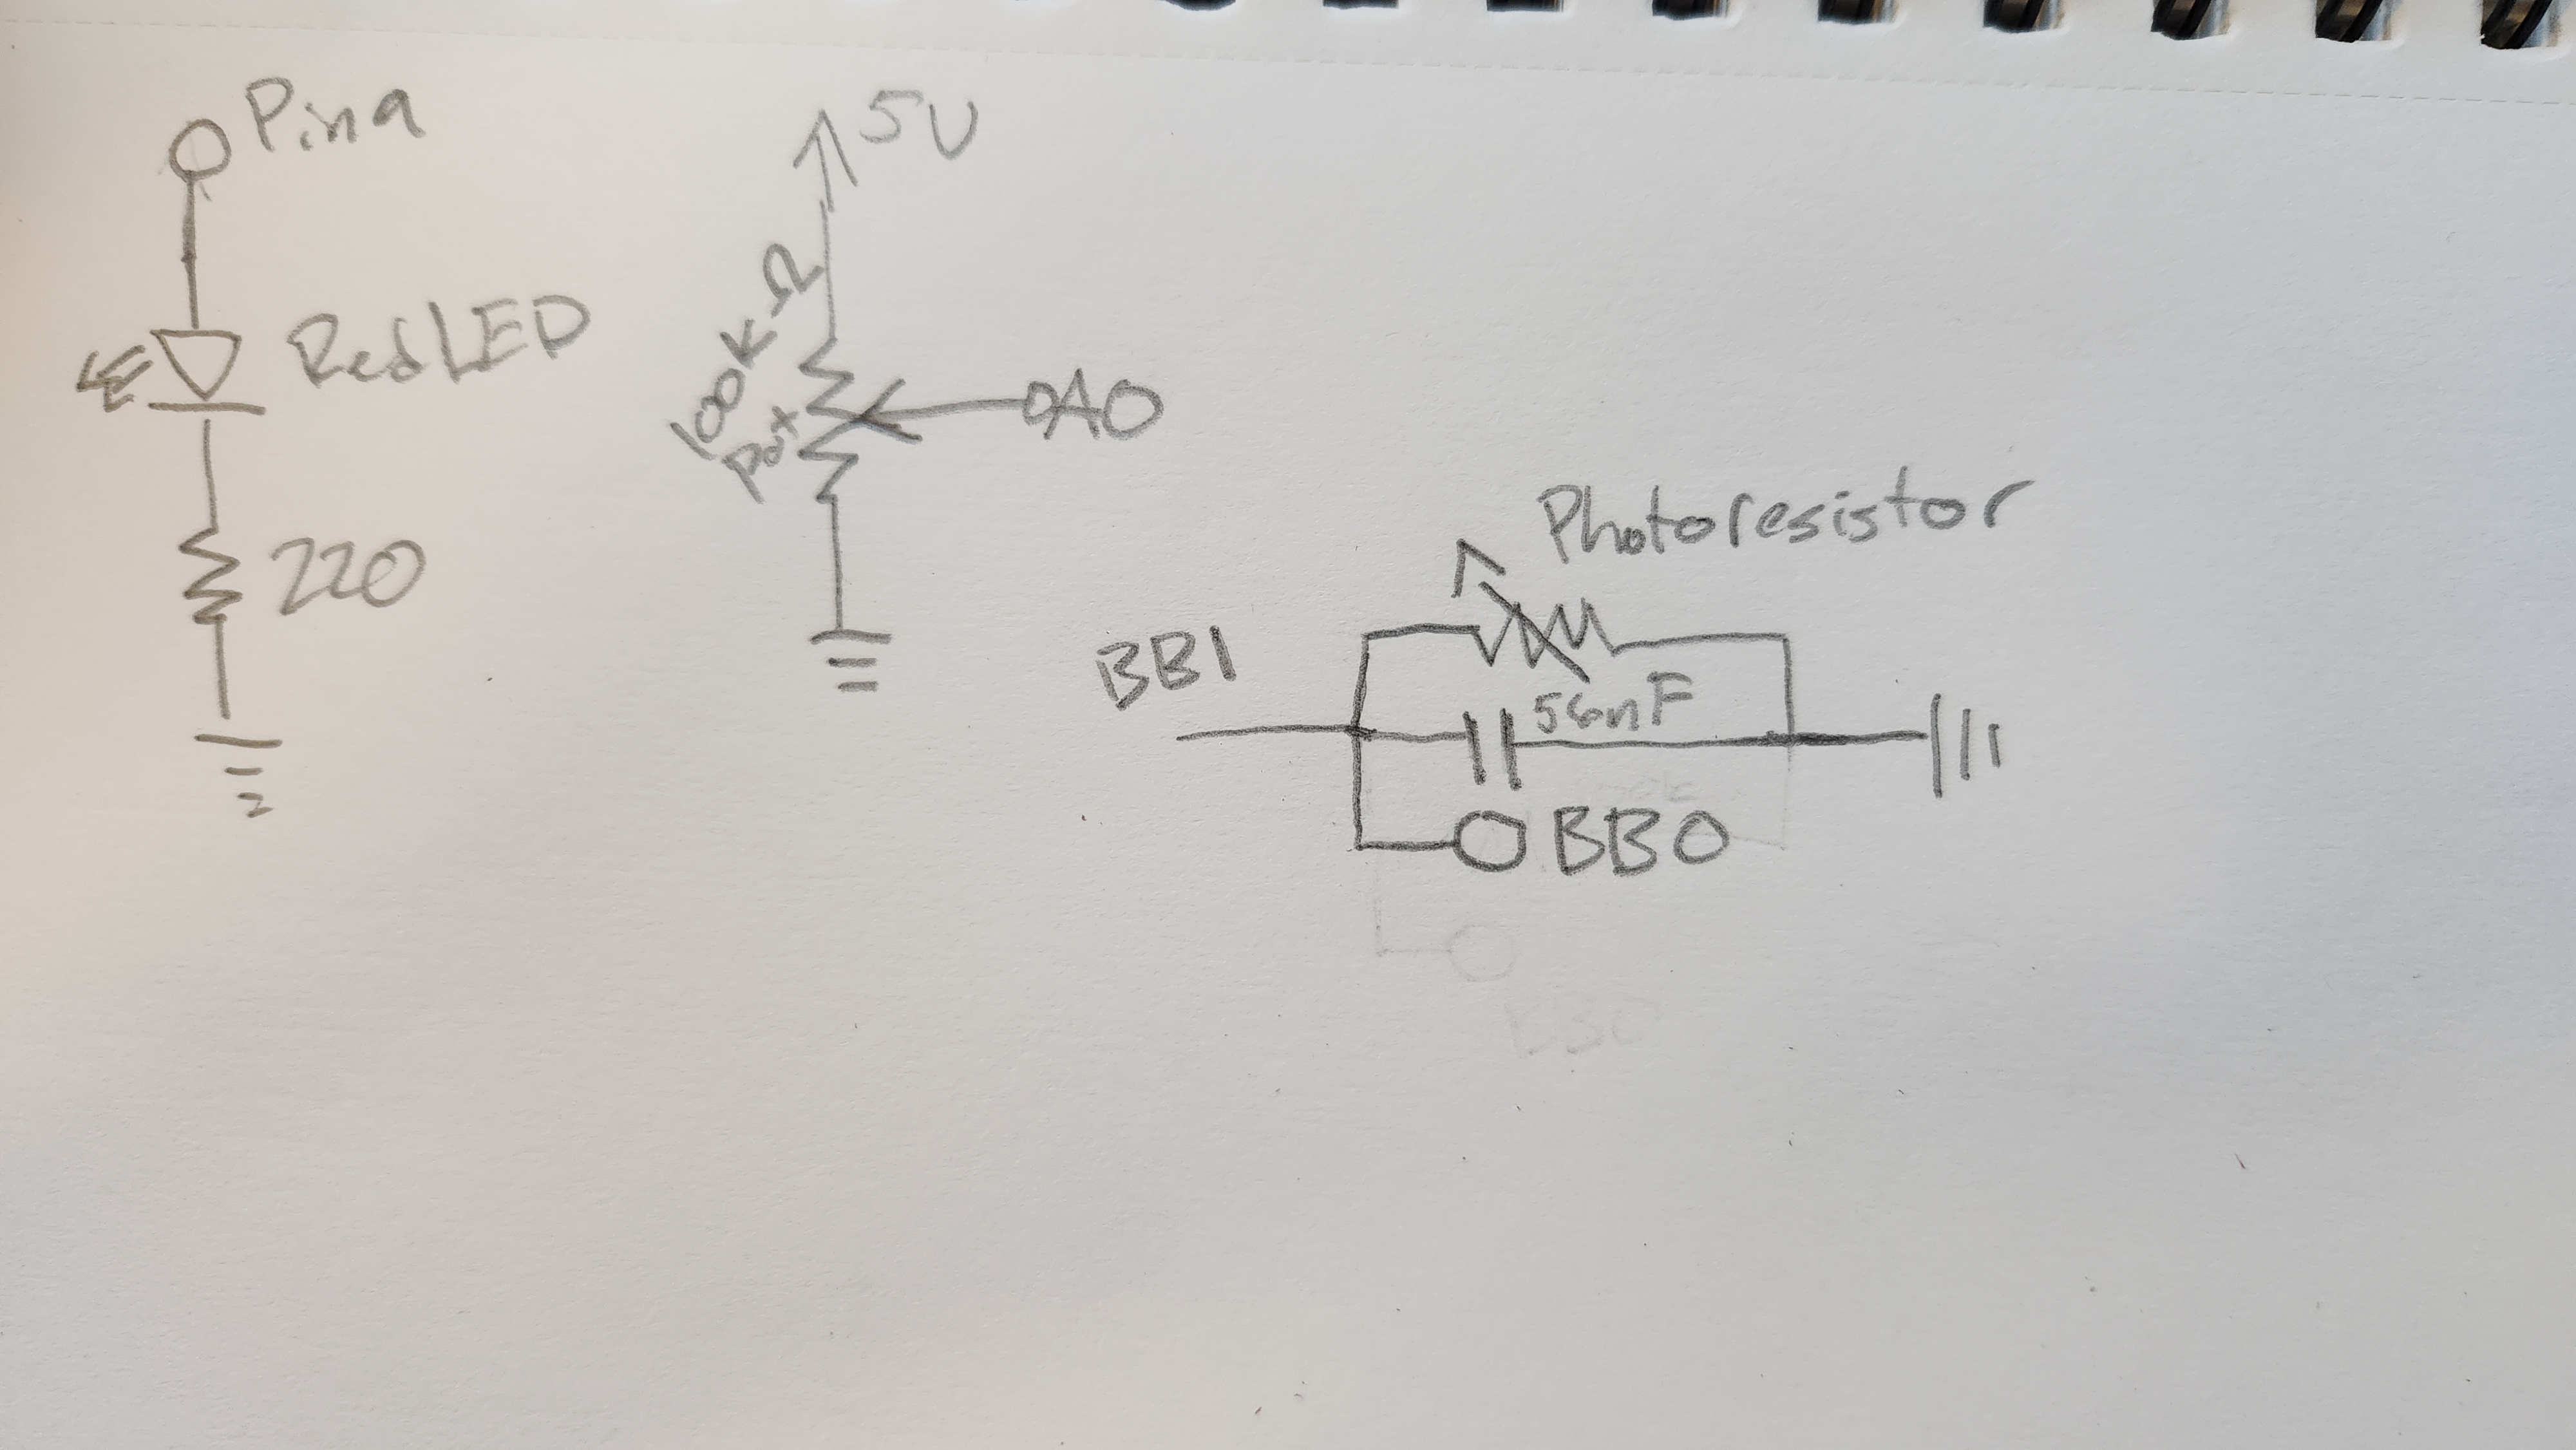 Pin 9
Red LED
220
5V
100K Ω
Pot
A0
Photoresistor
56nF
BB1
BB0
BB0